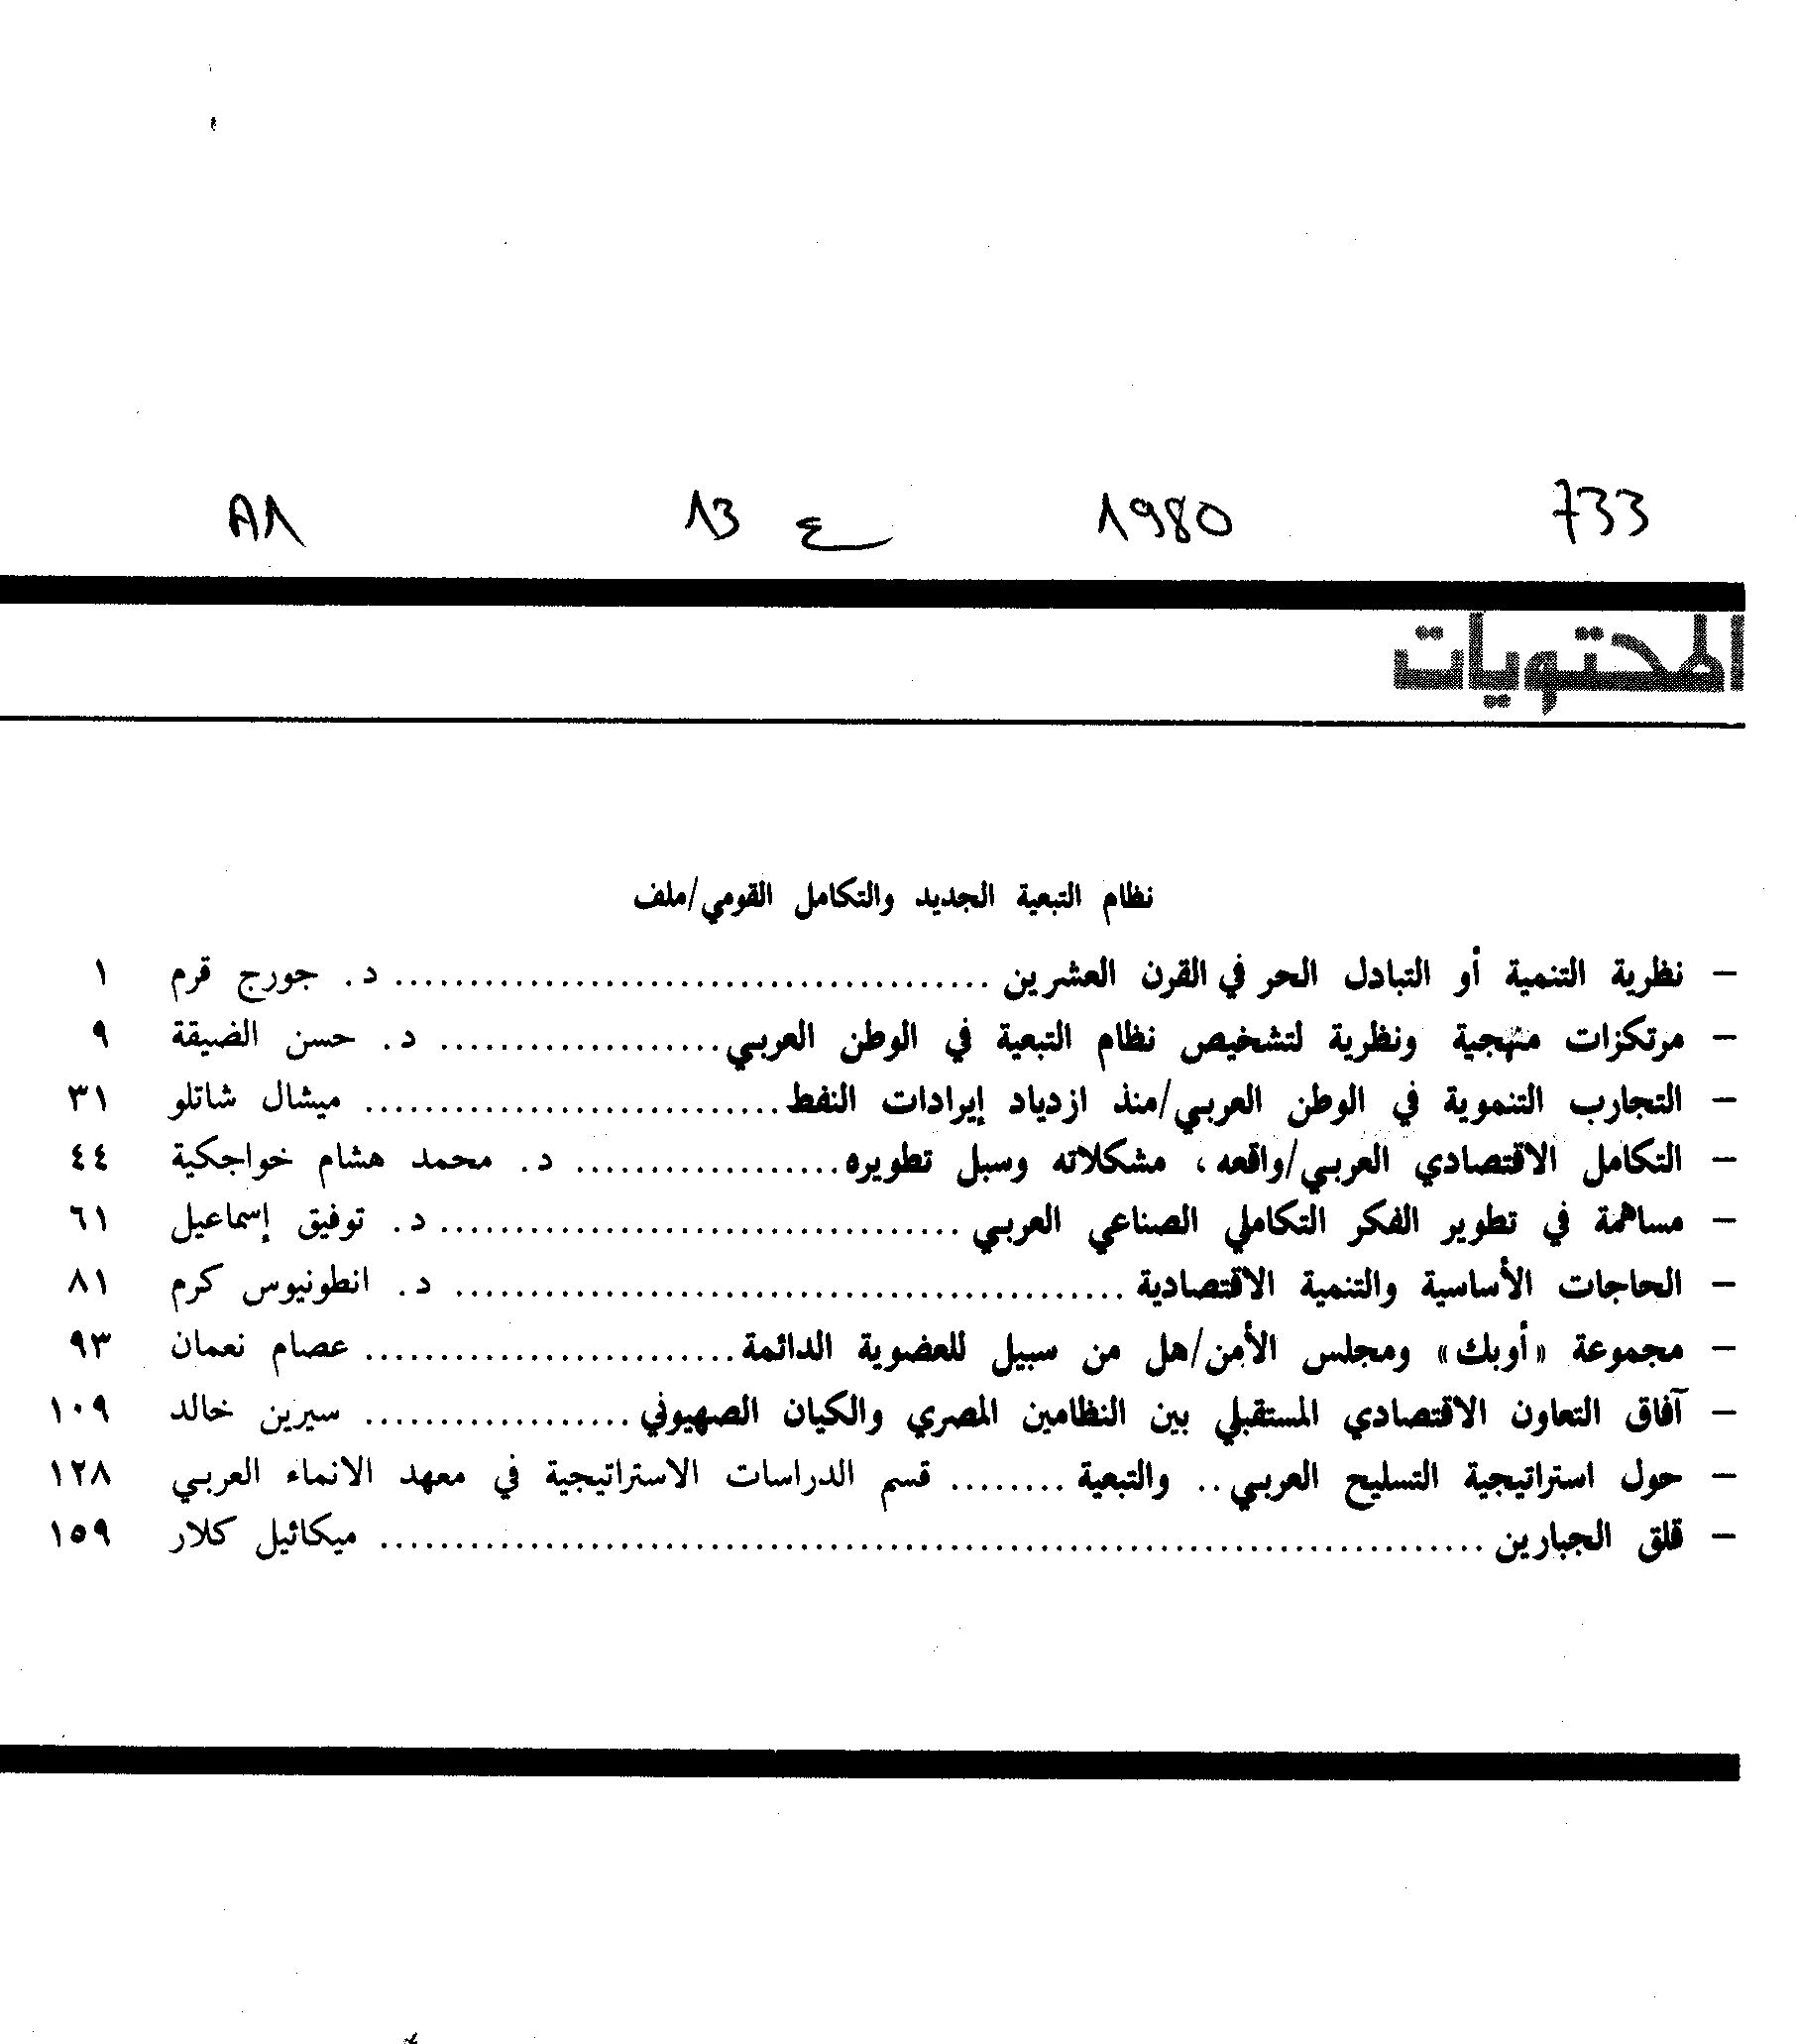 733 1980 ع 13 A1
المحتويات
نظام التبعية الجديد والتكامل القومي/ملف
– نظرية التنمية أو التبادل الحر في القرن العشرين ........................................ د. جورج قرم ١
– مرتكزات منهجية ونظرية لتشخيص نظام التبعية في الوطن العربي................... د. حسن الضيقة ٩
– التجارب التنموية في الوطن العربي/منذ ازدياد إيرادات النفط............................ ميشال شاتلو ٣١
– التكامل الاقتصادي العربي/واقعه، مشكلاته وسبل تطويره.................. د. محمد هشام خواجكية ٤٤
– مساهمة في تطوير الفكر التكاملي الصناعي العربي ................................... د. توفيق إسماعيل ٦١
– الحاجات الأساسية والتنمية الاقتصادية ............................................. د. انطونيوس كرم ٨١
– مجموعة «أوبك» ومجلس الأمن/هل من سبيل للعضوية الدائمة......................... عصام نعمان ٩٣
– آفاق التعاون الاقتصادي المستقبلي بين النظامين المصري والكيان الصهيوني.................. سيرين خالد ١٠٩
– حول استراتيجية التسليح العربي.. والتبعية ........ قسم الدراسات الاستراتيجية في معهد الانماء العربي ١٢٨
– قلق الجبارين .......................................................................... ميكائيل كلار ١٥٩